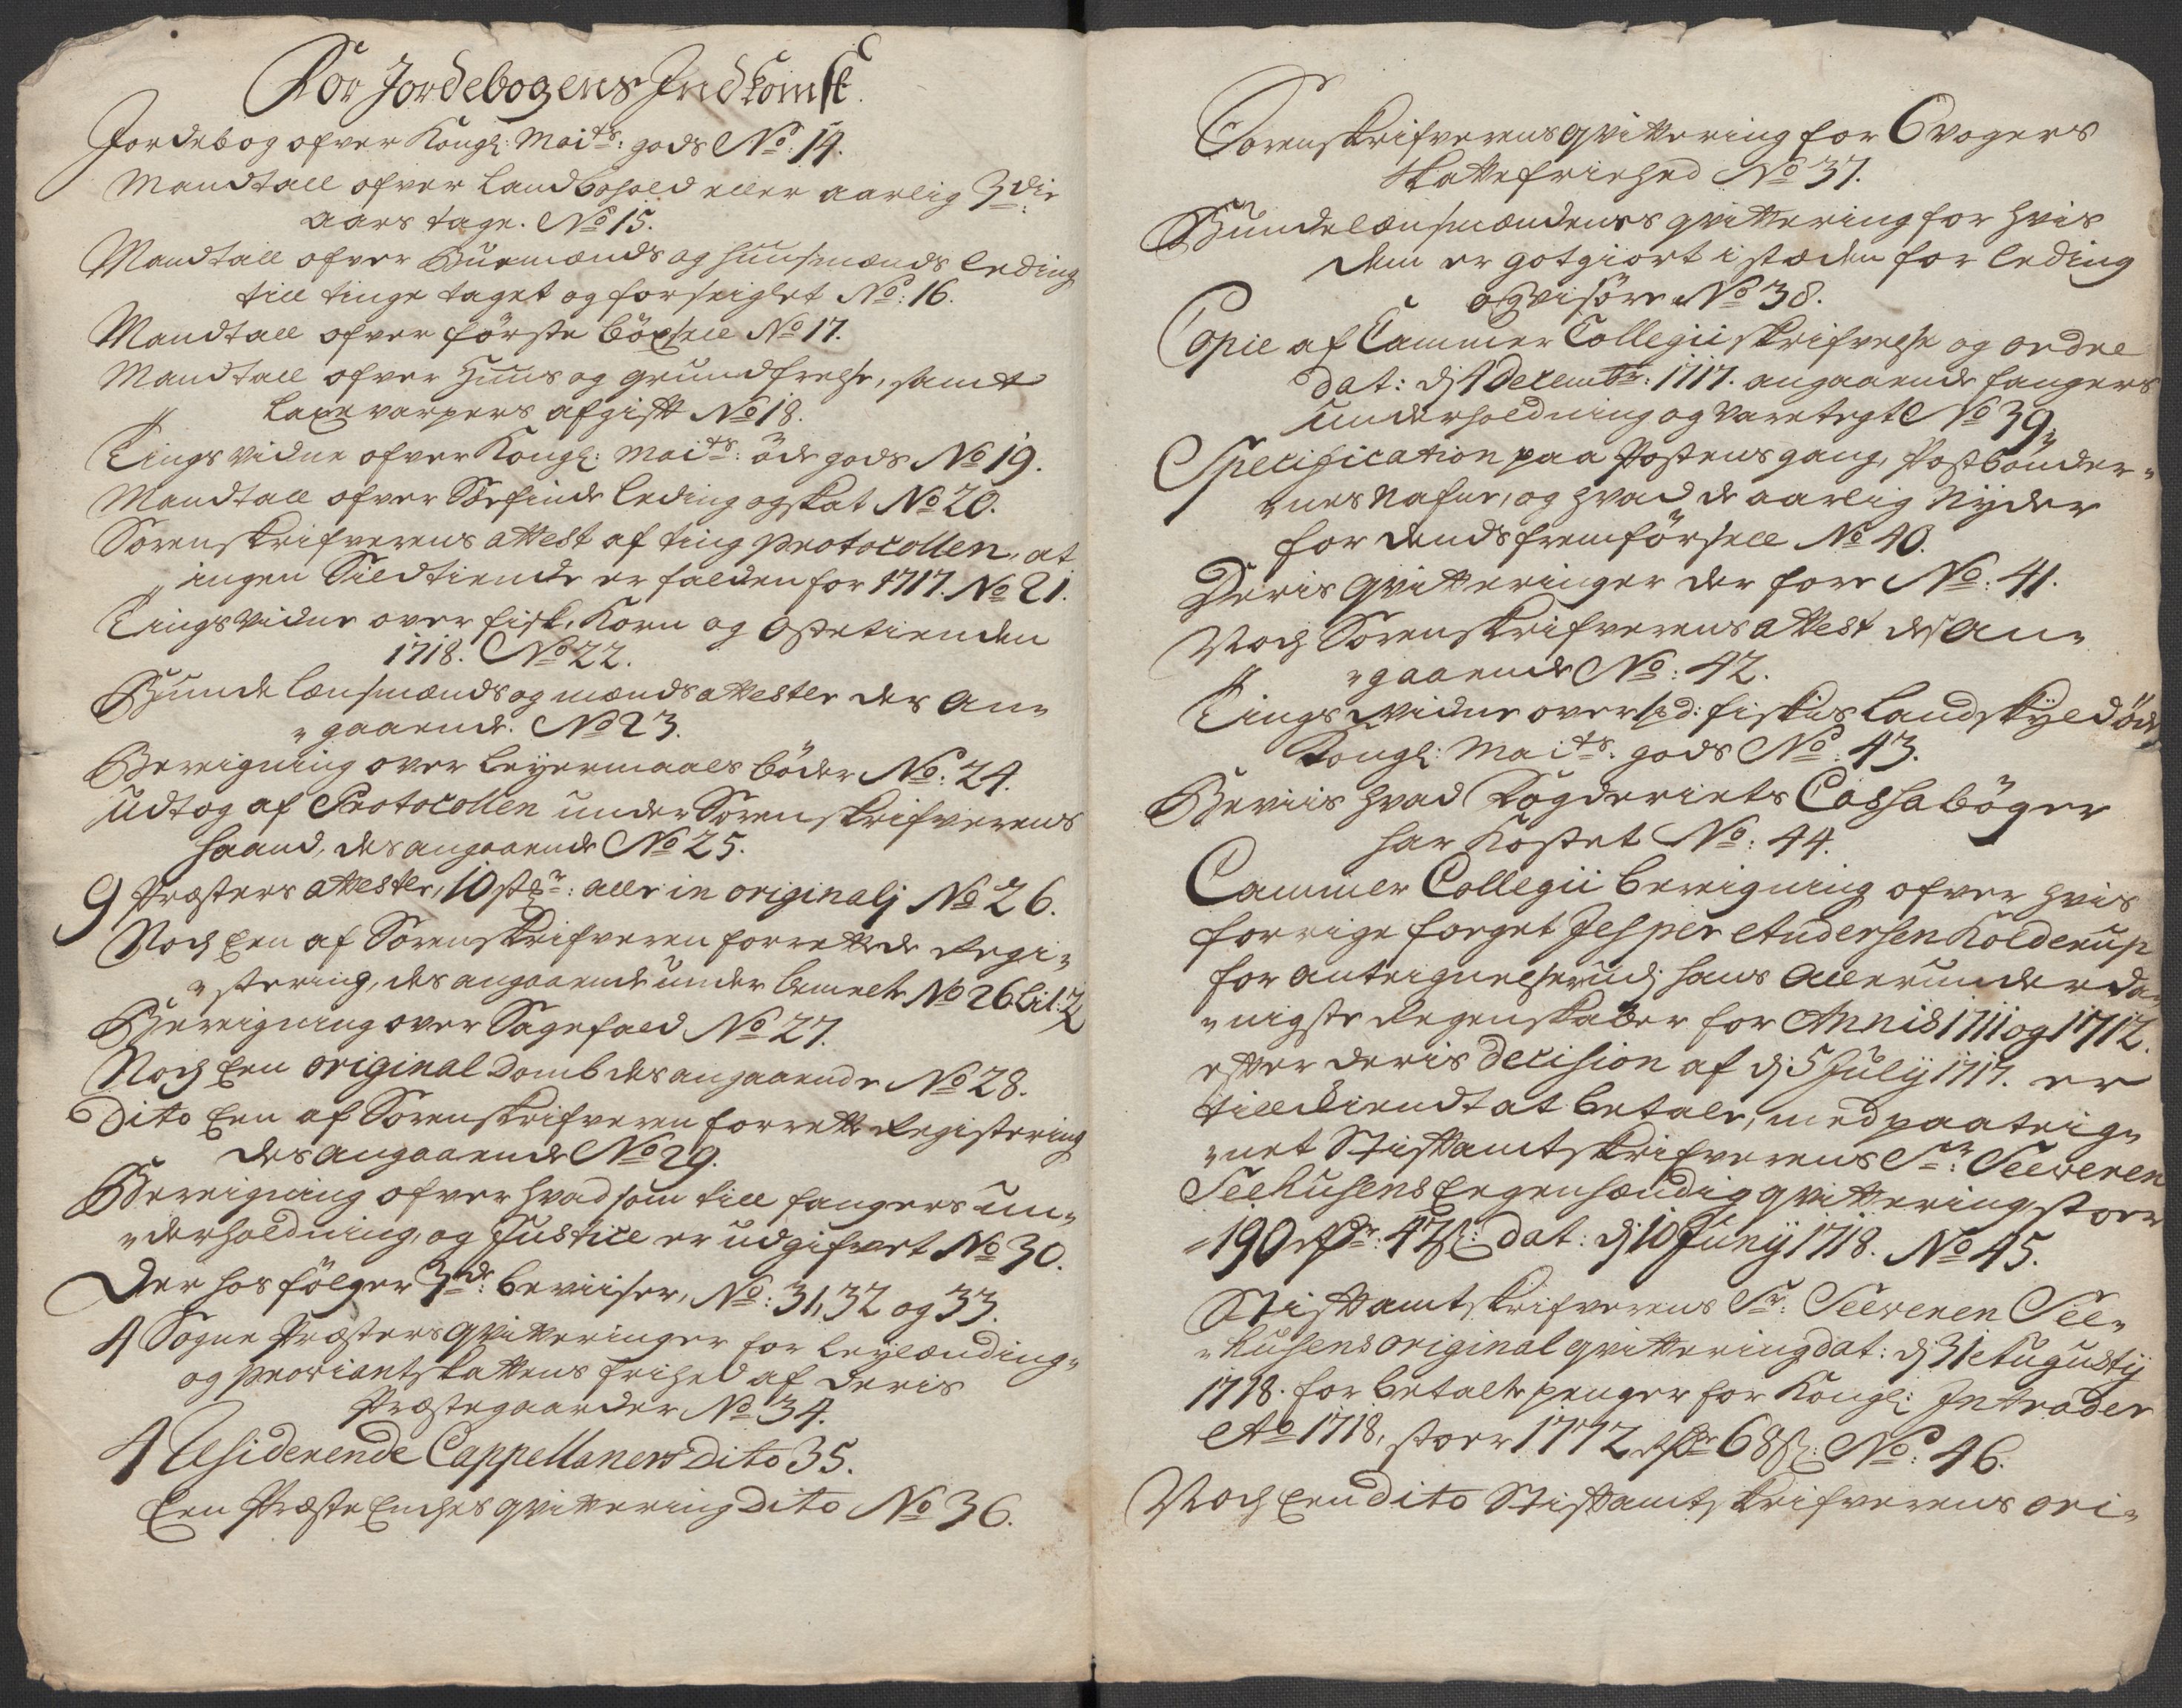 For Jordebogens Indkomst.
Jordebog ofver Kongl: Maits: gods No: 14.
Mandtall ofver Landbohold eller aarlig 3die
aars tage. No 15.
Mandtall ofver Buemænds og huusmænds leding
till tinge taget og forseiglet No: 16.
Mandtall ofver förste böxsell No 17.
Mandtall ofver Huus og grundfrelse, samt
laxevarpers afgift No 18.
Tingsvidne ofver Kongl: Maits: öde gods No 19.
Mandtall ofver Söefinde leding og skat No 20.
Sorenskrifverens attest af ting protocollen, at
ingen Sildtiende er falden for 1717. No 21.
Tingsvidne over fisk, Korn og Ostetienden
1718. No 22.
Bunde lænsmænds og mænds attester des an„
„gaaende. No 23.
Beregning over leyermaals böder No: 24.
Udtog af Protocollen under Sorenskrifverens
haand, des angaaende No 25.
9 Præsters attester, 10 stkr: alle in originalj No 26.
Noch Een af Sorenskrifveren forrettede Regi„
„stering, des angaaende under bemelte No 26 Lit:
Beregning over Sagefald No 27.
Noch Een original Domb des angaaende No 28.
Dito Een af Sorenskrifveren forrett Registering
des angaaende No 29.
Beregning ofver hvad som till fangers un„
„derholdning, og Justice er udgifvet No 30.
Der hos fölger 3de: beviiser, No: 31, 32 og 33.
4 Sogne Præsters qvitteringer for leylænding„
og proviantskattens frihed af deris
Præstegaarder No 34.
4 Residerende Cappellaners Dito 35.
Een Præste Enches qvittering Dito No 36.
Sorenskrifverens qvittering for 6 vogers
skattefriehed No 37.
Bundelænsmændenes qvittering for hvis
dem er gotgiort i stæden for leding
og visöre No 38.
Copie af Cammer Collegii skrifvelse og ordre
dat: dj 4 Decembr: 1717. angaaende fangers
underholdning og Varetegt No 39.
Specification paa Postens gang, Postbönder„
„nes Nafne, og hvad de aarlig Nyder
for dends fremförsell No 40.
Deris Qvitteringer der fore No: 41.
Noch Sorenskrifverens attest des an„
„gaaende No: 42.
Tings vidne over fiskis Landskyld öde
Kongl: Maits: gods No: 43.
Beviis hvad Fogderiets Cassa böger
har Kostet No: 44.
Cammer Collegii beregning ofver hvis
forrige foeget Jesper Andersen Kolderup
for antegnelserne udj hans allerunderda„
„nigste Regenskaber for Annis 1711 og 1712.
efter deris decision af dj 5 July 1717. er
tilldiendt at betale, med paateig„
„net Stiftamtskrifverens Sr: Seeveren
Seehusens Egenhændig qvittering stoer
190 rdr: 47 s: dat: dj 10 Juny 1718. No 45.
Stiftamtskrifverens Sr: Seeveren See„
„husens original qvittering dat: dj 31 Augustij
1718. for betalte penger for Kongl: Intrader
Ao 1718, stoer 1772 rdr 68 s: No: 46.
Noch Een dito Stiftamtskrifverens ori„